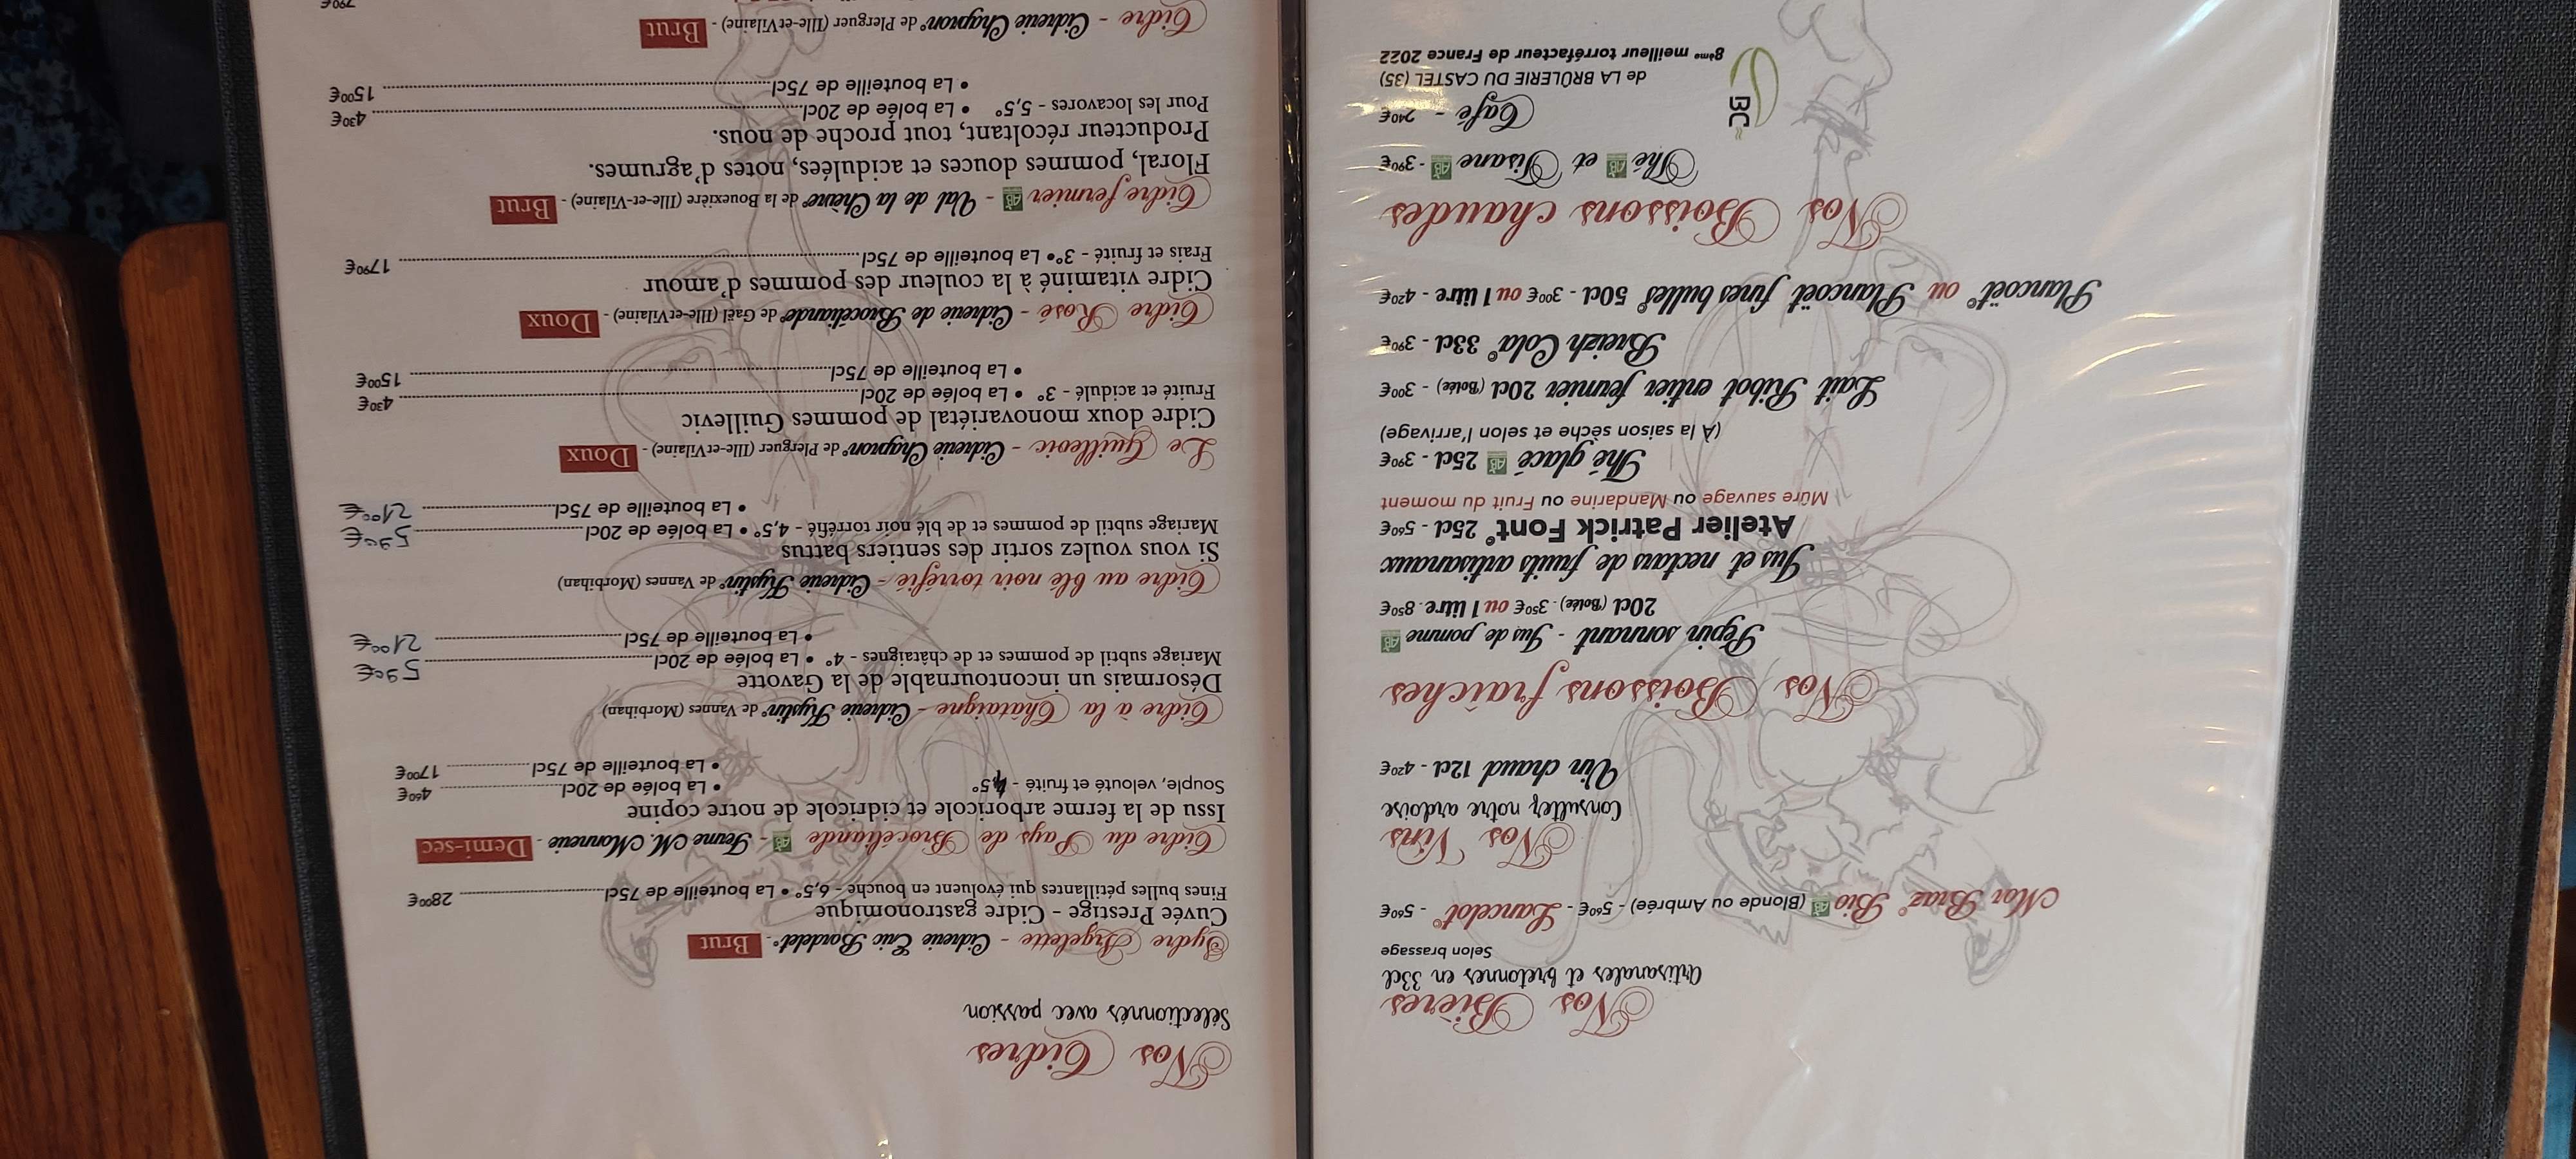 Nos Bières
Artisanales et bretonnes en 33cl
Selon brassage
Mor Braz® Bio AB (Blonde ou Ambrée) - 5€60 - Lancelot® - 5€60
Nos Vins
Consultez notre ardoise
Vin chaud 12cl - 4€20
Nos Boissons fraîches
Pépin sonnant - Jus de pomme AB
20cl (Bolée) - 3€50 ou 1 litre - 8€50
Jus et nectars de fruits artisanaux
Atelier Patrick Font® 25cl - 5€60
Mûre sauvage ou Mandarine ou Fruit du moment
Thé glacé AB 25cl - 3€90
(À la saison sèche et selon l'arrivage)
Lait Ribot entier fermier 20cl (Bolée) - 3€00
Breizh Cola® 33cl - 3€90
Plancoët® ou Plancoët fines bulles® 50cl - 3€00 ou 1 litre - 4€20
Nos Boissons chaudes
Thé AB et Tisane AB - 3€90
Café - 2€40
de LA BRÛLERIE DU CASTEL (35)
8ème meilleur torréfacteur de France 2022
BC
Nos Cidres
Sélectionnés avec passion
Sydre Argelette - Cidrerie Eric Bordelet® - Brut
Cuvée Prestige - Cidre gastronomique
Fines bulles pétillantes qui évoluent en bouche - 6,5° • La bouteille de 75cl 28€00
Cidre du Pays de Brocéliande AB - Ferme M. Monnerie - Demi-sec
Issu de la ferme arboricole et cidricole de notre copine
Souple, velouté et fruité - 4,5° • La bolée de 20cl 4€60
• La bouteille de 75cl 17€00
Cidre à la Châtaigne - Cidrerie Kystin® de Vannes (Morbihan)
Désormais un incontournable de la Gavotte
Mariage subtil de pommes et de châtaignes - 4° • La bolée de 20cl 5€90
• La bouteille de 75cl 21€00
Cidre au blé noir torréfié - Cidrerie Kystin® de Vannes (Morbihan)
Si vous voulez sortir des sentiers battus
Mariage subtil de pommes et de blé noir torréfié - 4,5° • La bolée de 20cl 5€90
• La bouteille de 75cl 21€00
Le Guillevic - Cidrerie Chapron® de Plerguer (Ille-et-Vilaine) - Doux
Cidre doux monovariétal de pommes Guillevic
Fruité et acidulé - 3° • La bolée de 20cl 4€30
• La bouteille de 75cl 15€00
Cidre Rosé - Cidrerie de Brocéliande® de Gaël (Ille-et-Vilaine) - Doux
Cidre vitaminé à la couleur des pommes d'amour
Frais et fruité - 3° • La bouteille de 75cl 17€90
Cidre fermier AB - Val de la Chèvre® de la Bouexière (Ille-et-Vilaine) - Brut
Floral, pommes douces et acidulées, notes d'agrumes.
Producteur récoltant, tout proche de nous.
Pour les locavores - 5,5° • La bolée de 20cl 4€30
• La bouteille de 75cl 15€00
Cidre - Cidrerie Chapron® de Plerguer (Ille-et-Vilaine) - Brut